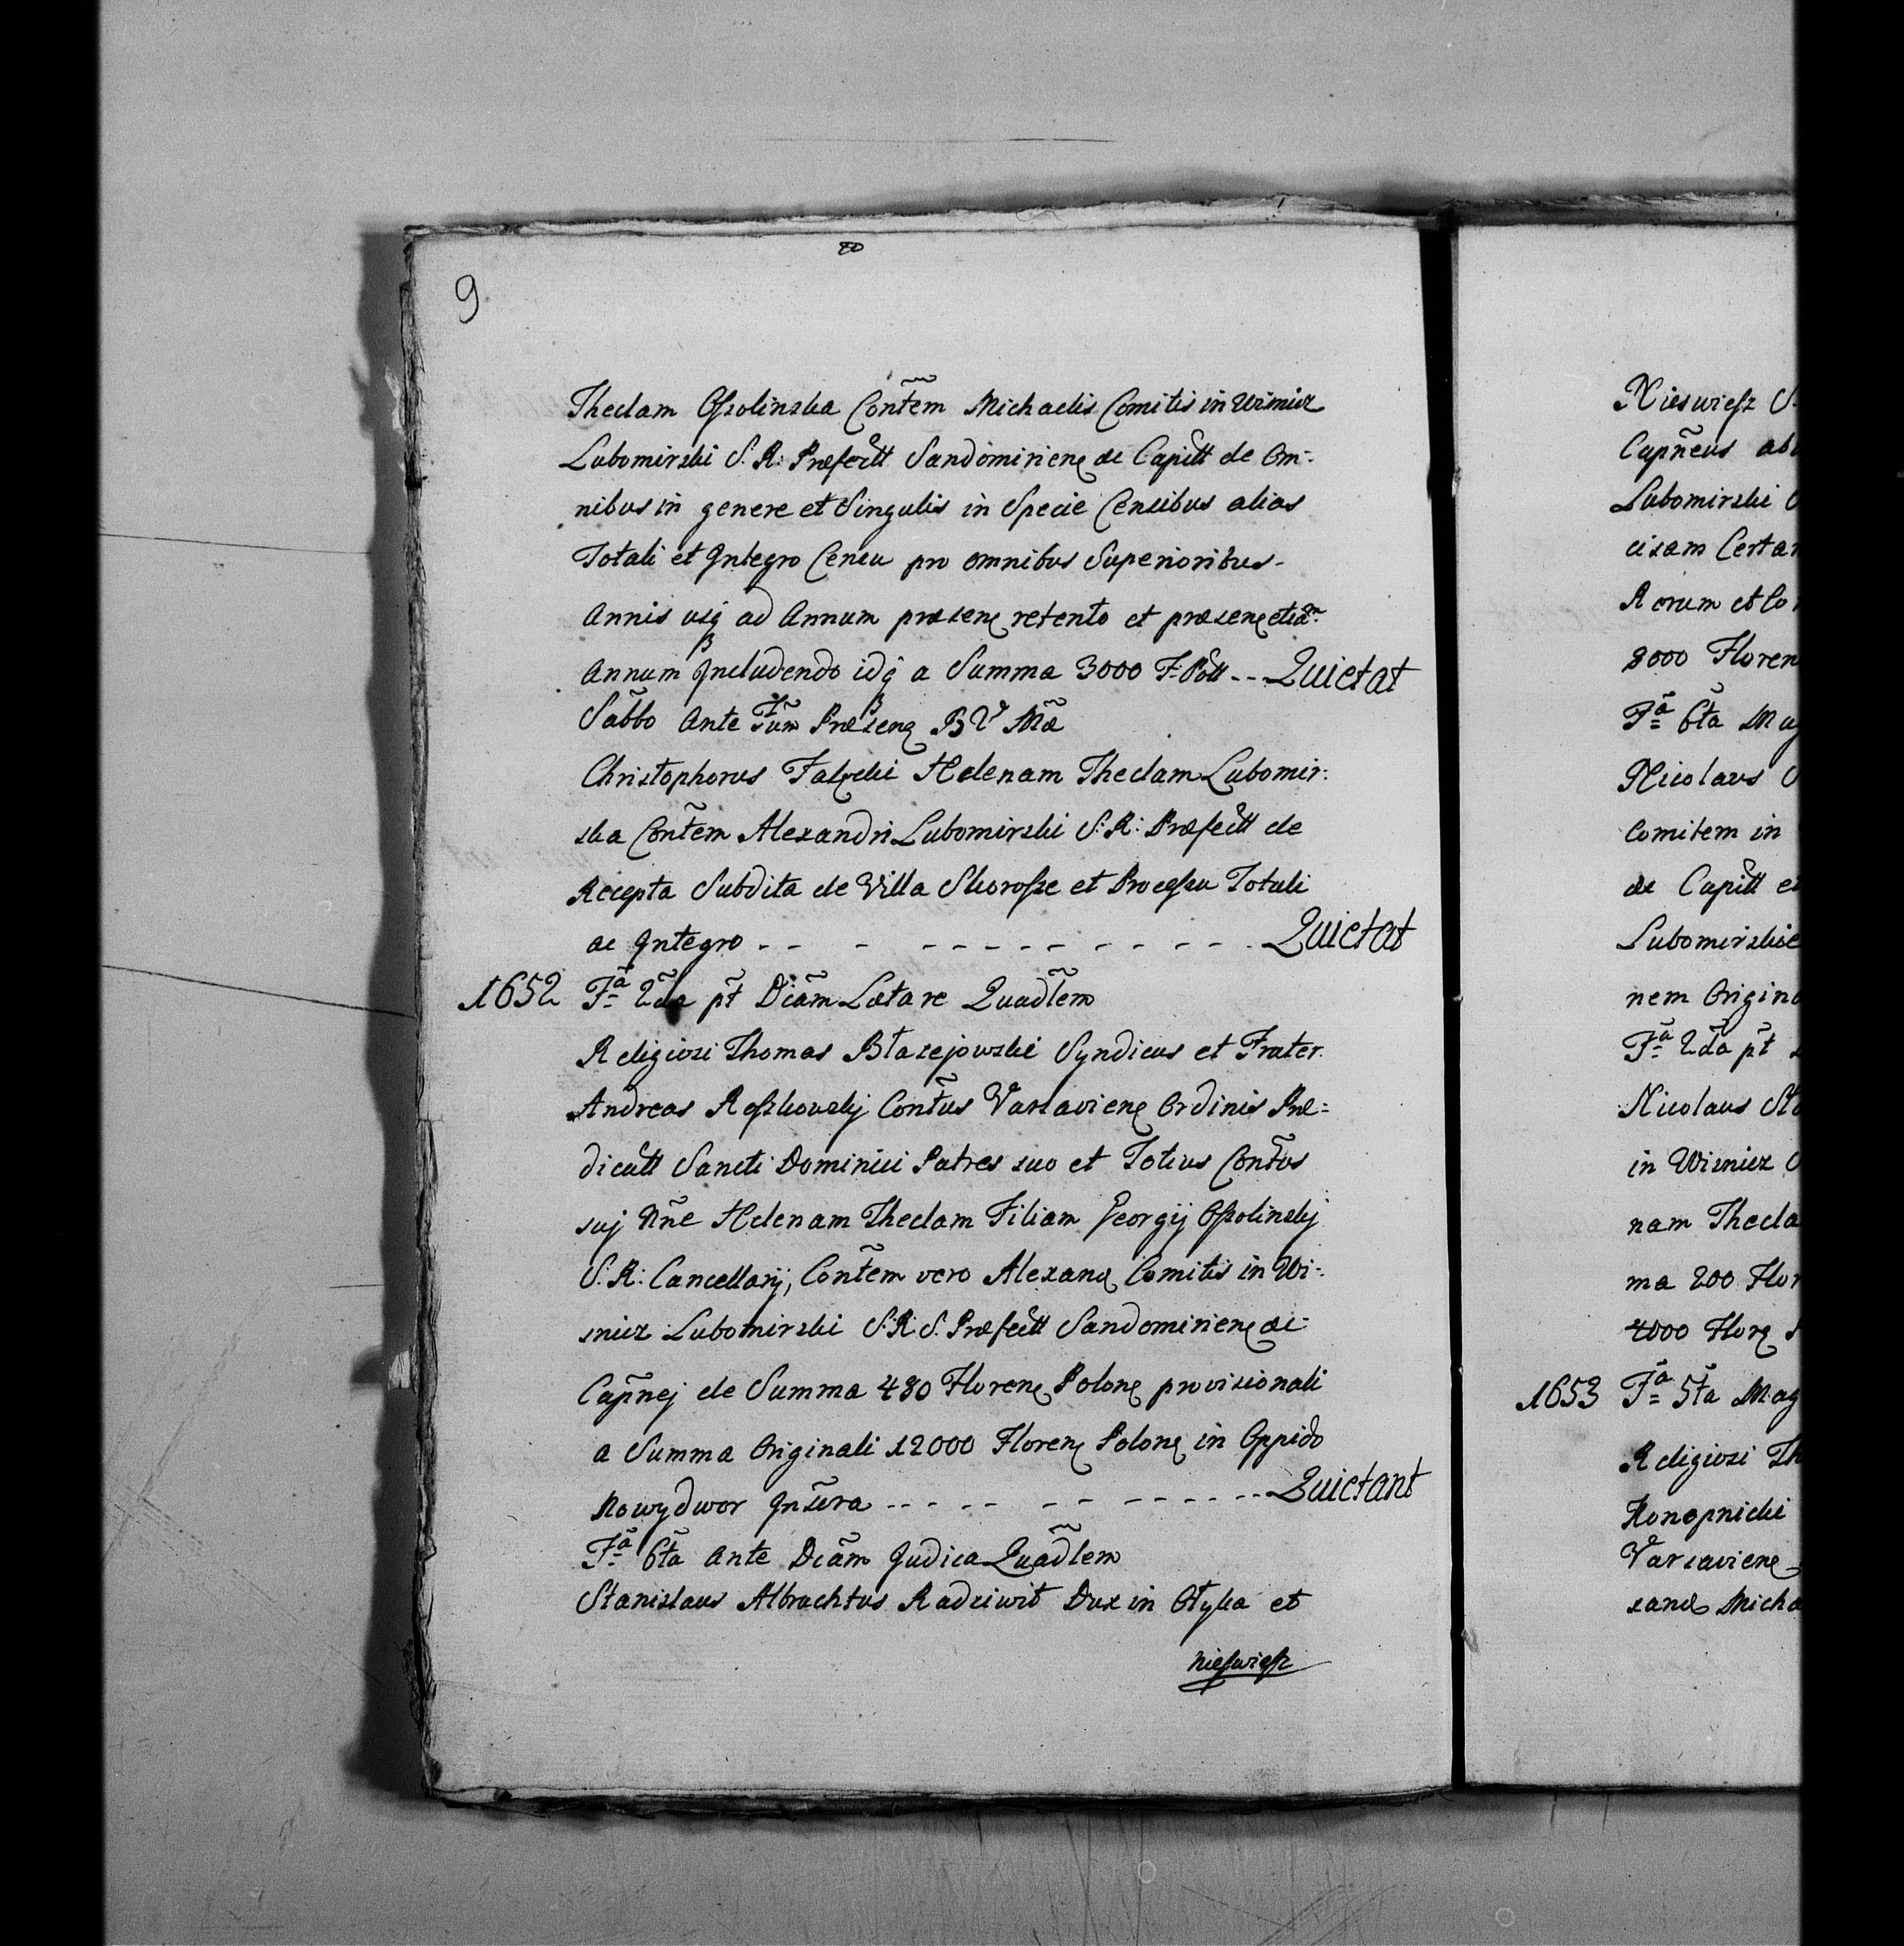 9
Theclam Oſsolinska Conĩem Michaelis Comitis in Wisnicz
Lubomirski S. R: Præfectt Sandomiriens ac Capitt de Om=
nibus in genere et Singulis in Specie Censibus alias
Totali et Integro Censu pro omnibus Superioribus
Annis usq ad Annum præsens retento et præsens etiam
Annum Includendo idq a Summa 3000 F. Poll --- Quietat
Sabbo Ante Fum Præsens B V Mæ
Christophorus Falęcki Helenam Theclam Lubomir:
ska Contem Alexandri Lubomirski S: R: Præfectt de
Recepta Subdita de Villa Skorosze et Proceſsu Totali
ac Integro - - - - - - - - - - - Quietat
1652 Fa 2da pt Dicam Lætare Quadlem
Religiosi Thomas Błazejowski Syndicus et Frater
Andreas Reſzkowskij Contus Varsaviens Ordinis Præ=
dicatt Sancti Dominici Patres suo et Totius Contus
suj Nne Helenam Theclam Filiam Georgij Oſsolinskij
S. R: Cancellarij, Contem vero Alexand Comitis in Wi=
snicz Lubomirski S. R. S. Præfectt Sandomiriens ac
Capnej de Summa 480 Florens Polons provisionali
a Summa Originali 12000 Florens Polons in Oppido
Nowydwor Insura - - - - - - - - - - - Quietant
Fa 6ta Ante Dcam Judica Quadlem
Stanislaus Albrachtus Radziwił Dux in Ołyka et
Nieſwieſz
Nieswieſz S.
Capneus
Lubomirski
Rerum et
8000 Floren
Fa 6ta
Nicolaus
Comitem in
ac Capitt
nem
Fa 2da pt
Nicolaus
in Wisnicz
nam Thecla
ma 200 Flor
4000 Flor
1653 Fa 5ta Mag
Religiosi Th
Konopnicki
Varsaviens
xand Micha